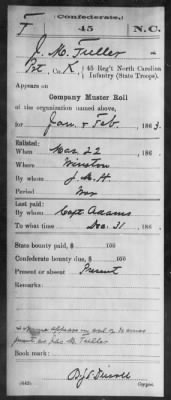 (Confederate.)
T 45 N.C.
J. M. Tuller
Pvt, Co. K, 45 Reg't North Carolina
Infantry (State Troops).
Appears on
Company Muster Roll
of the organization named above,
for Jan & Feb, 1863.
Enlisted:
When Mar 22, 186
Where Winston
By whom J. M. H
Period War
Last paid:
By whom Capt Adams
To what time Dec. 31, 186
State bounty paid, $ 100
Confederate bounty due, $ 100
Present or absent Present
Remarks:
appears on
as Jno. M. Tuller
Book mark:
(642)
Copyist.